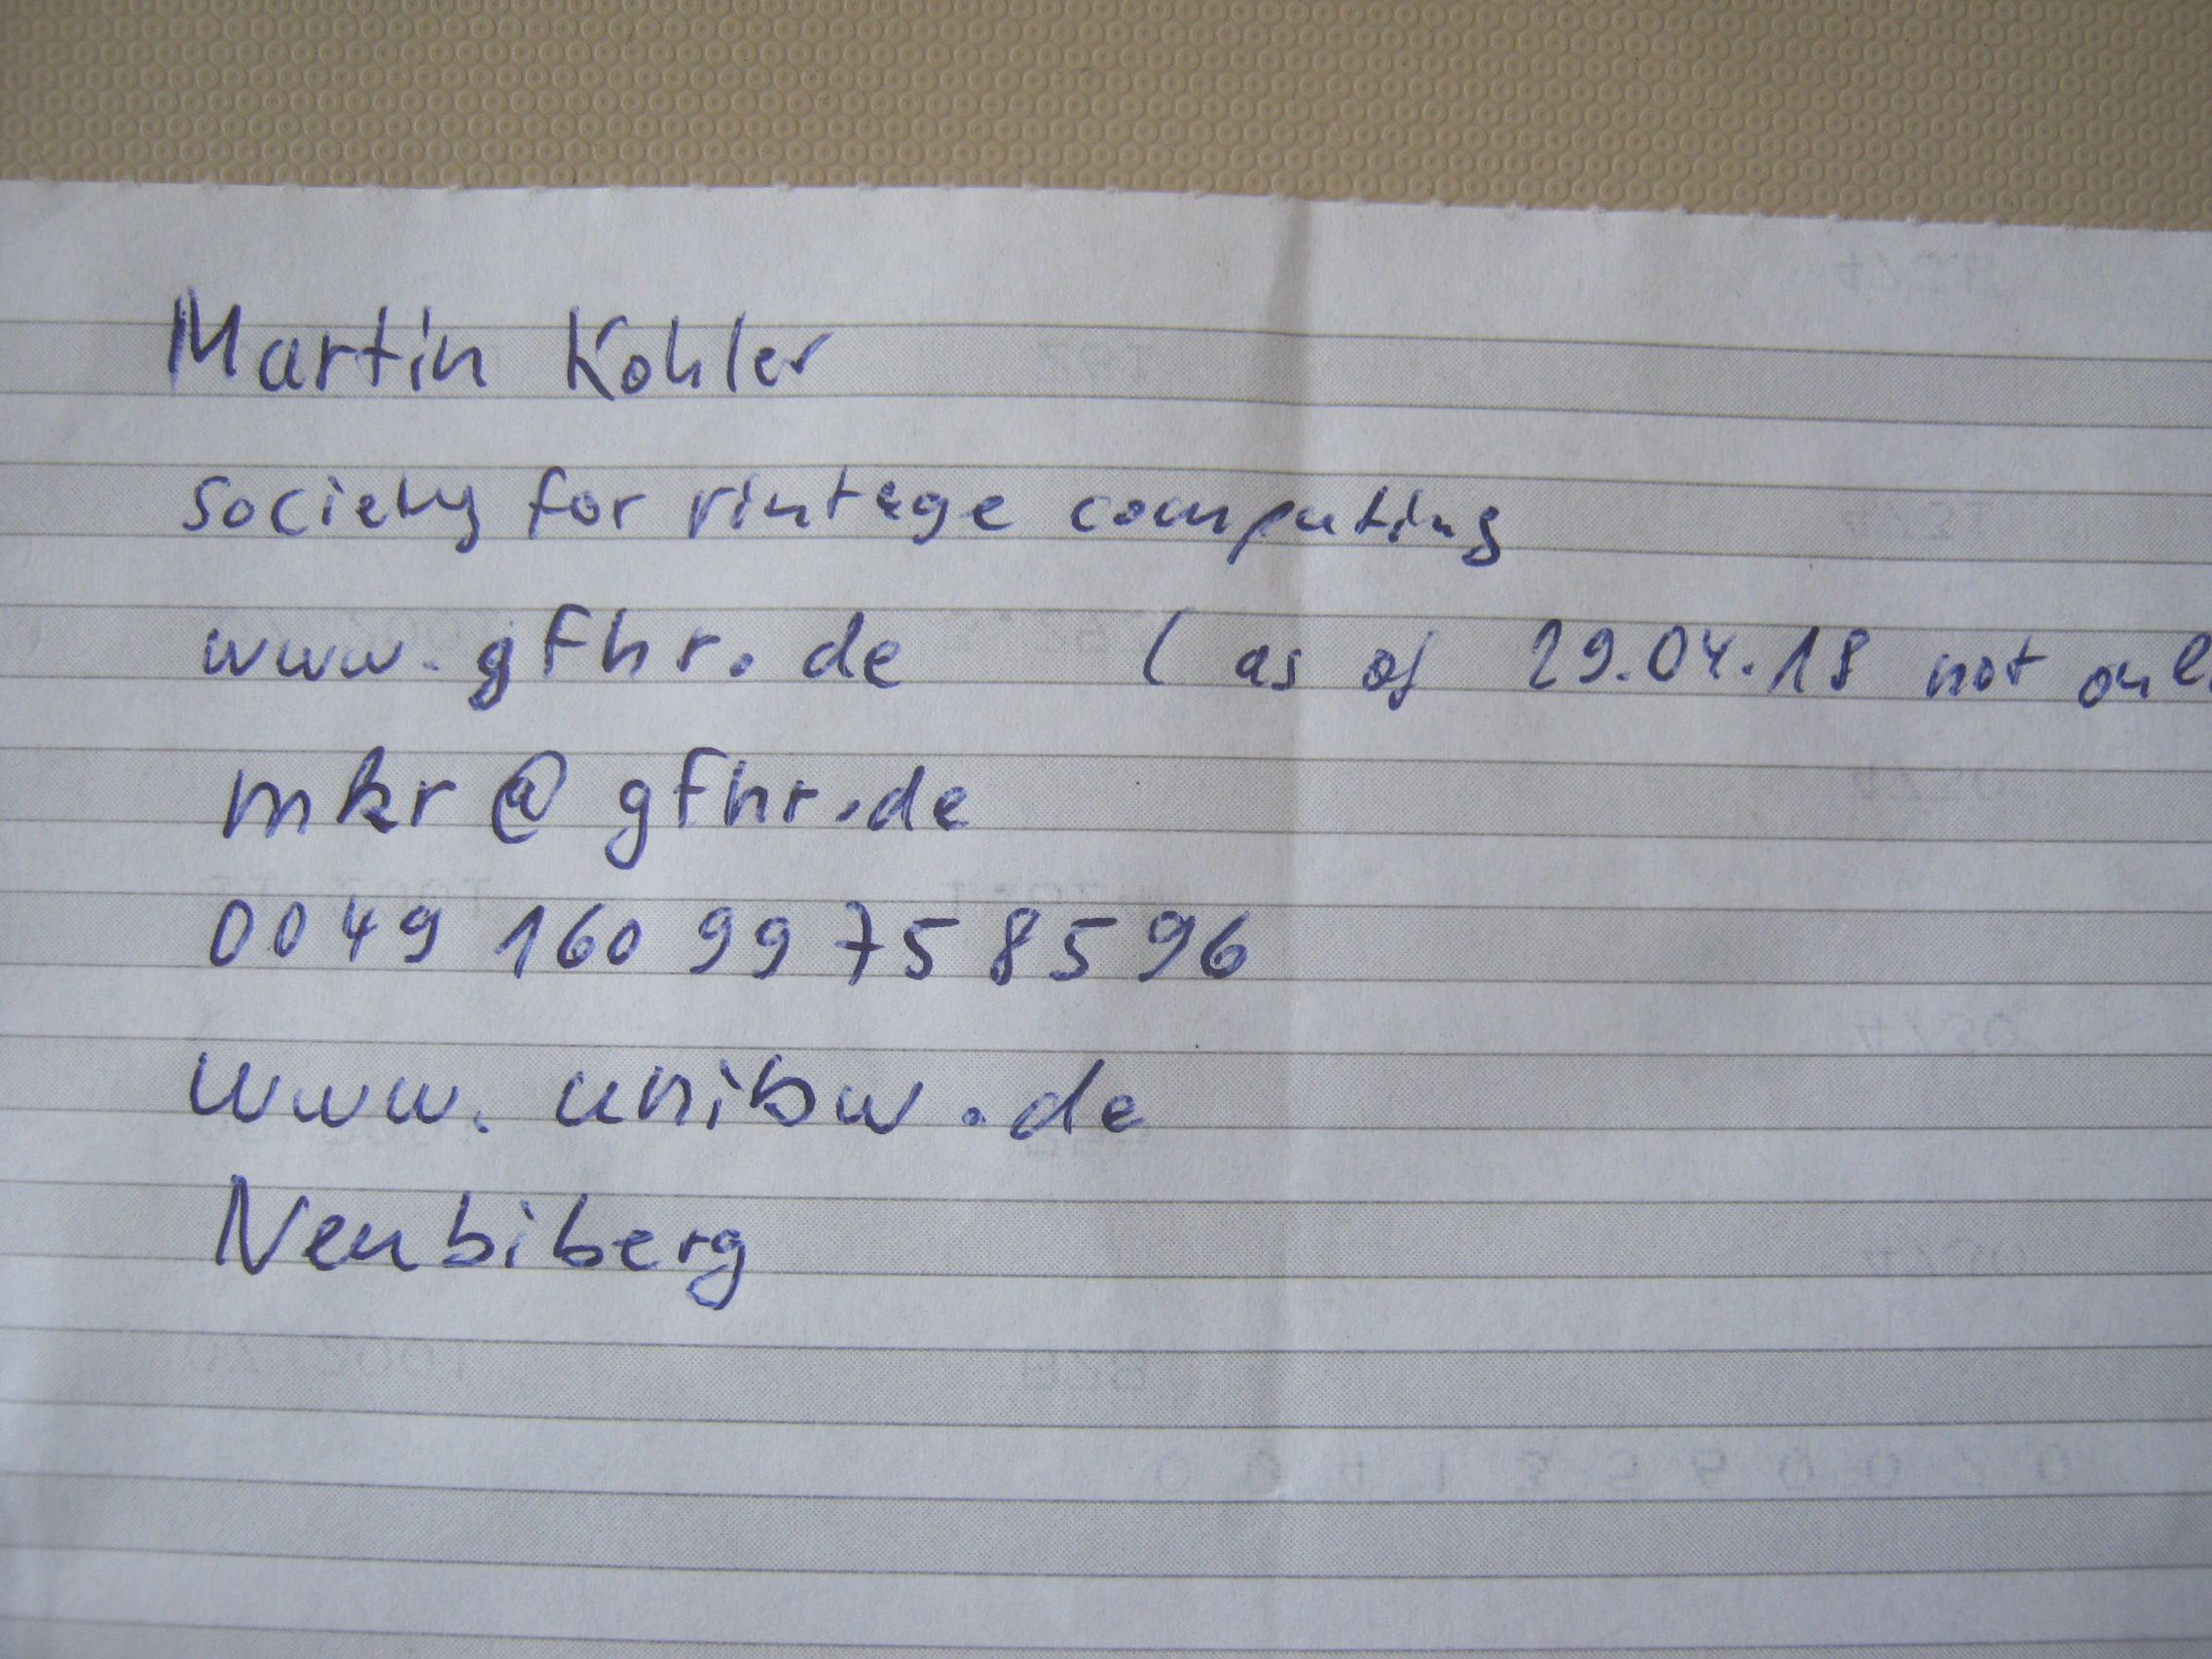 Martin Kohler
society for vintage computing
www.gfhr.de (as of 29.04.18 not onl
mkr@gfhr.de
0049 160 99 75 85 96
www.unibw.de
Neubiberg